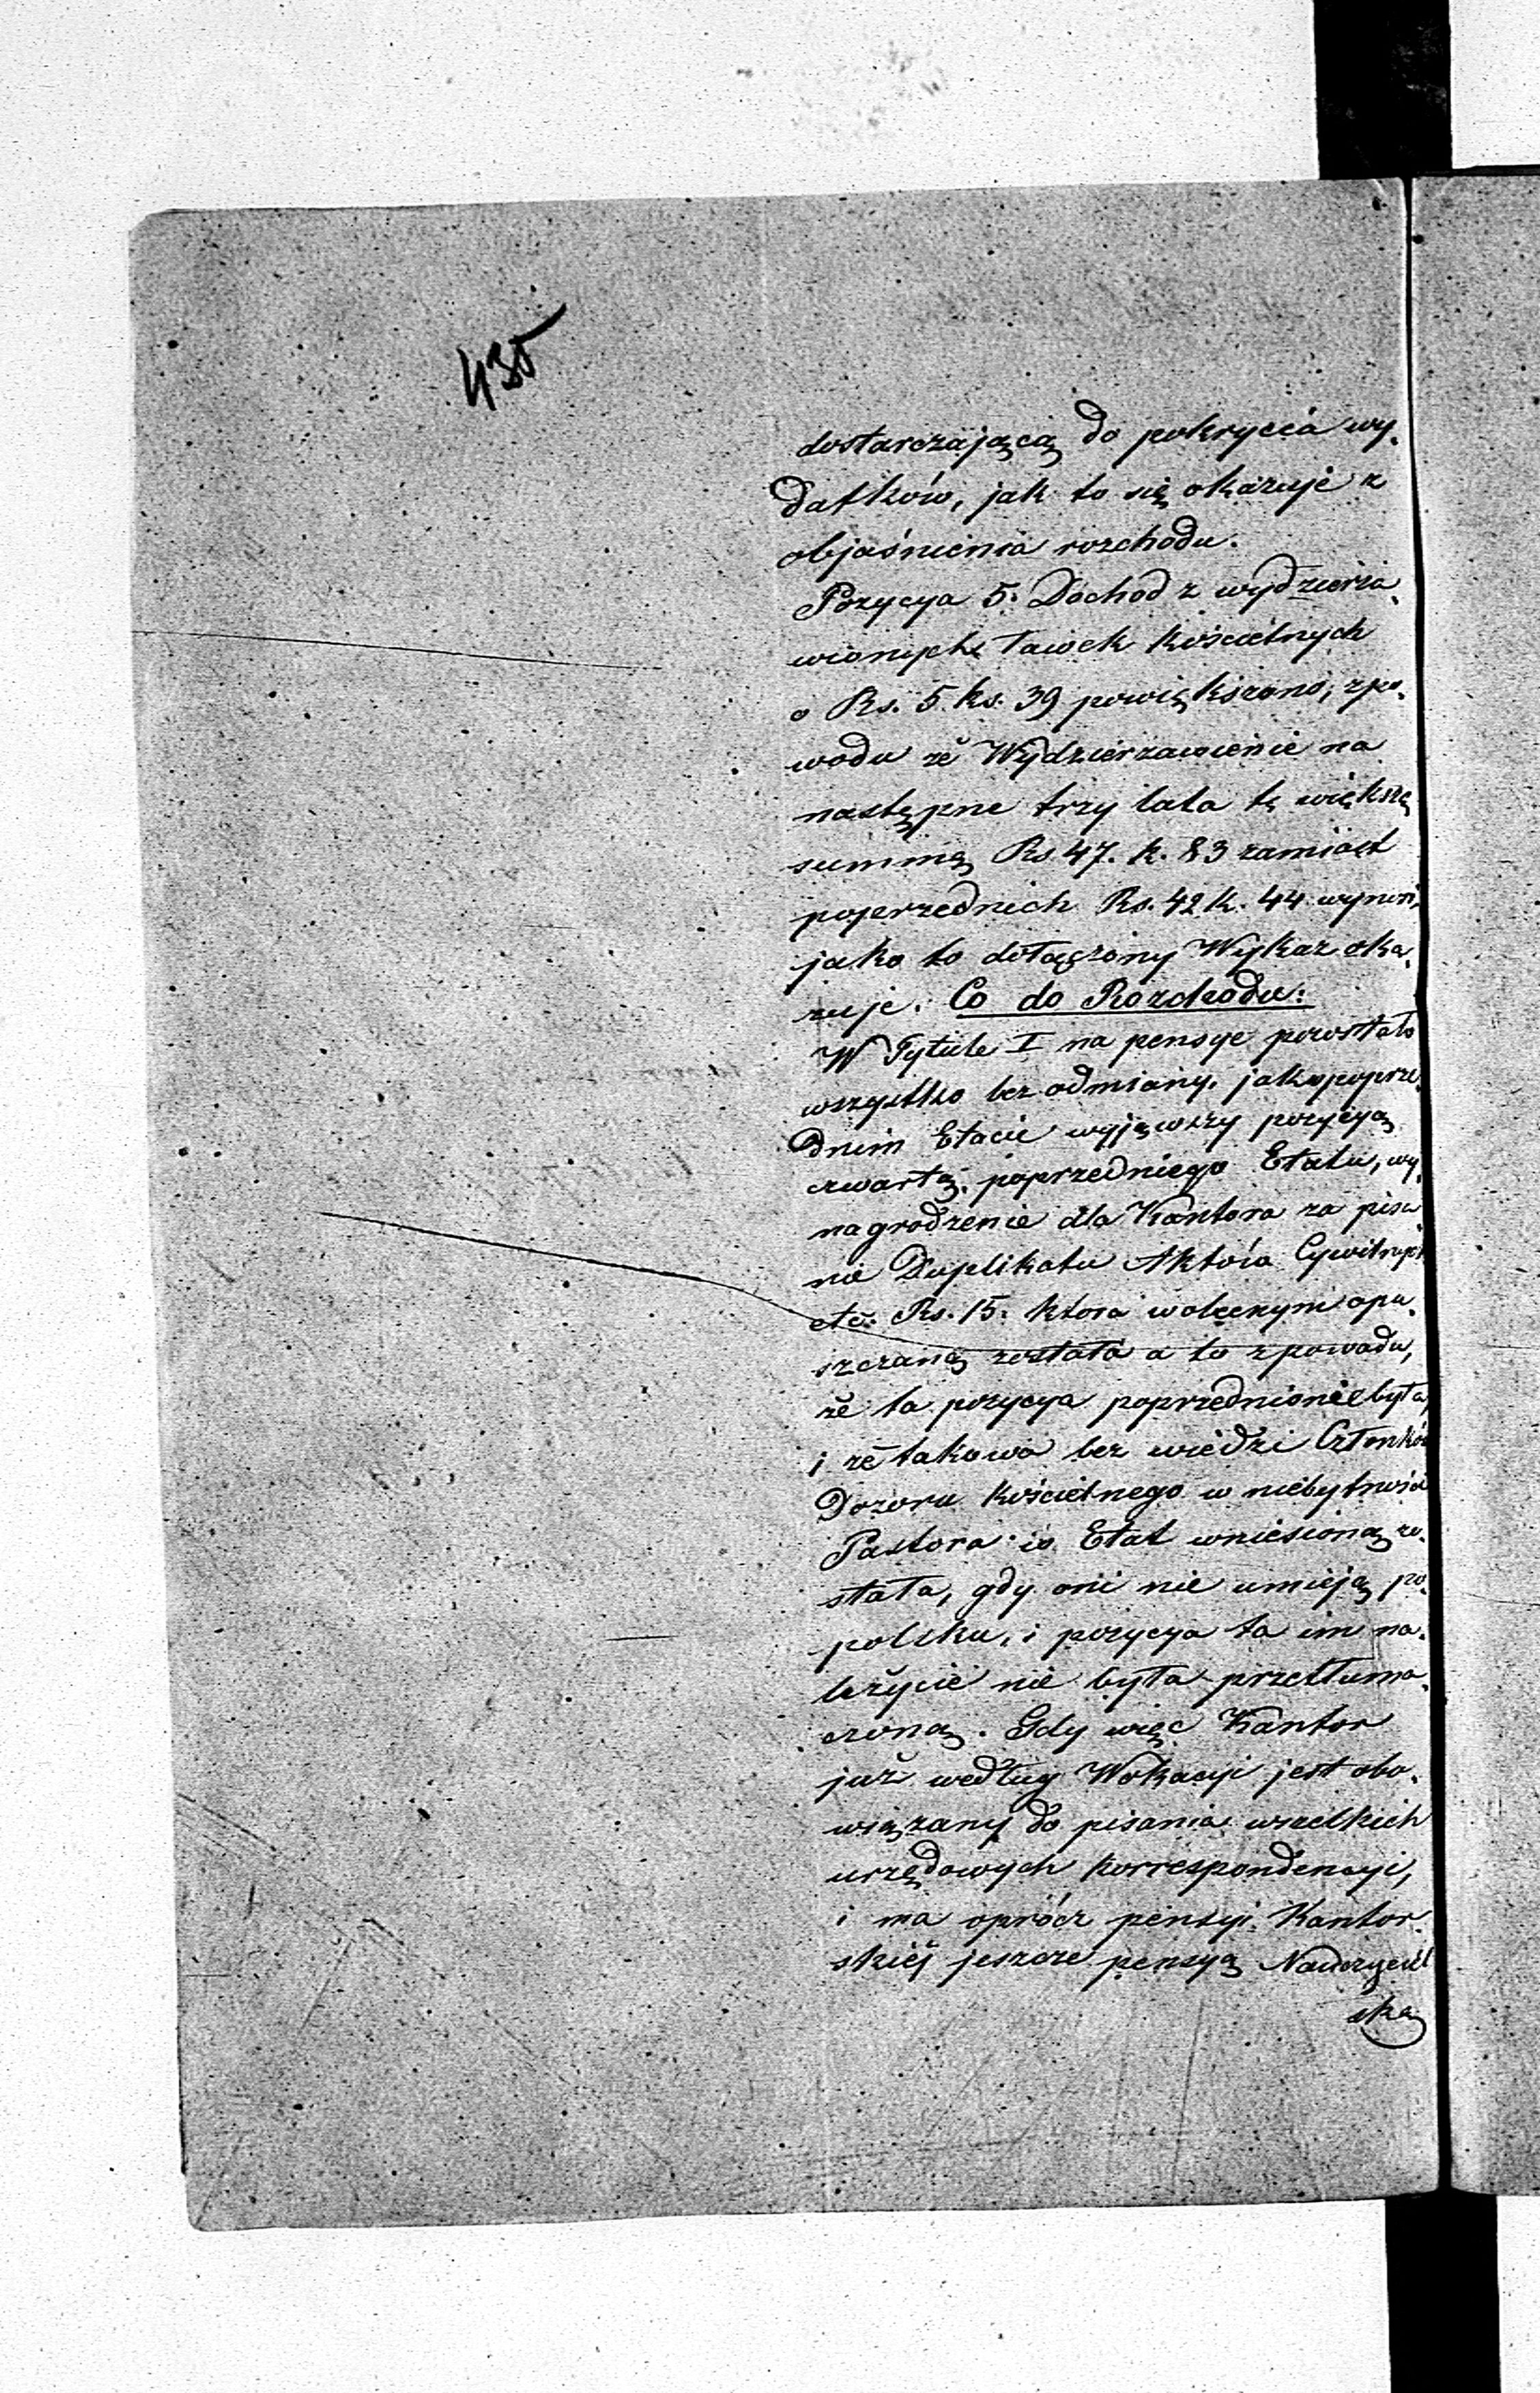 435
dostarczającą do pokrycia wy„
datków, jak to się okazuje z
objaśnienia rozchodu.
Pozycya 5. Dochod z wydzierża„
wionych ławek kościelnych
o Rs. 5. ks. 39 powiększono, zpo„
wodu że Wydzierzawienie na
następne trzy lata tę większą
summę Rs. 47. k. 83 zamiast
poperzednich Rs. 42 k. 44 wynosi,
jako to dołączony Wykaz oka„
zuje. Co do Rozchodu:
W Tytule I na pensye pozostało
wszystko bez odmiany, jak w poprze„
dnim Etacie wyjąwszy pozycyą
czwartą, poprzedniego Etatu, wy„
nagrodzenie dla Kantora za pisa„
nie Duplikatu Aktów Cywilnych
etc: Rs. 15. ktora w obecnym opu„
szczaną została a to z powodu,
że ta pozycya poprzednio nie była,
i że takowa bez wiedzi Członków
Dozoru kościelnego w niebytności
Pastora w Etat wniesioną zo„
stała, gdy oni nie umieją po
polsku, i pozycya ta im na„
leżycie nie była przetłuma„
czoną. Gdy więc Kantor
już według Wokacyi jest obo„
wiązany do pisania wszelkich
urzędowych korrespondencyi,
i ma oprócz pensyi Kantor„
skiéj jeszcze pensyą Nauczyciel
ską